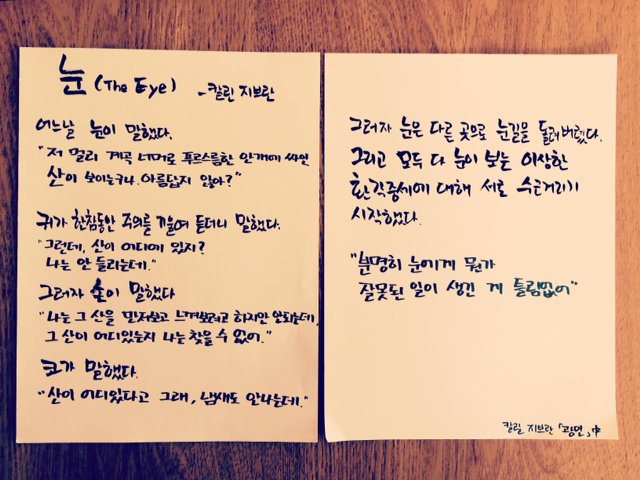 눈 (The Eye) - 칼린 지브란
어느날 눈이 말했다.
"저 멀리 계곡 너머로 푸르스름한 안개에 싸인
산이 보이는구나. 아름답지 않아?"
귀가 한참동안 주의를 기울여 듣더니 말했다.
"그런데, 산이 어디에 있지?
나는 안 들리는데."
그러자 손이 말했다
"나는 그 산을 만져보고 느껴보려고 하지만 안되는데,
그 산이 어디있는지 나는 찾을 수 없어."
코가 말했다.
"산이 어디있다고 그래, 냄새도 안나는데."
그러자 눈은 다른 곳으로 눈길을 돌려버렸다.
그리고 모두 다 눈이 보는 이상한
환각증세에 대해 서로 수근거리기
시작했다.
"분명히 눈에게 뭔가
잘못된 일이 생긴 게 틀림없어"
칼릴 지브란 「광인」中